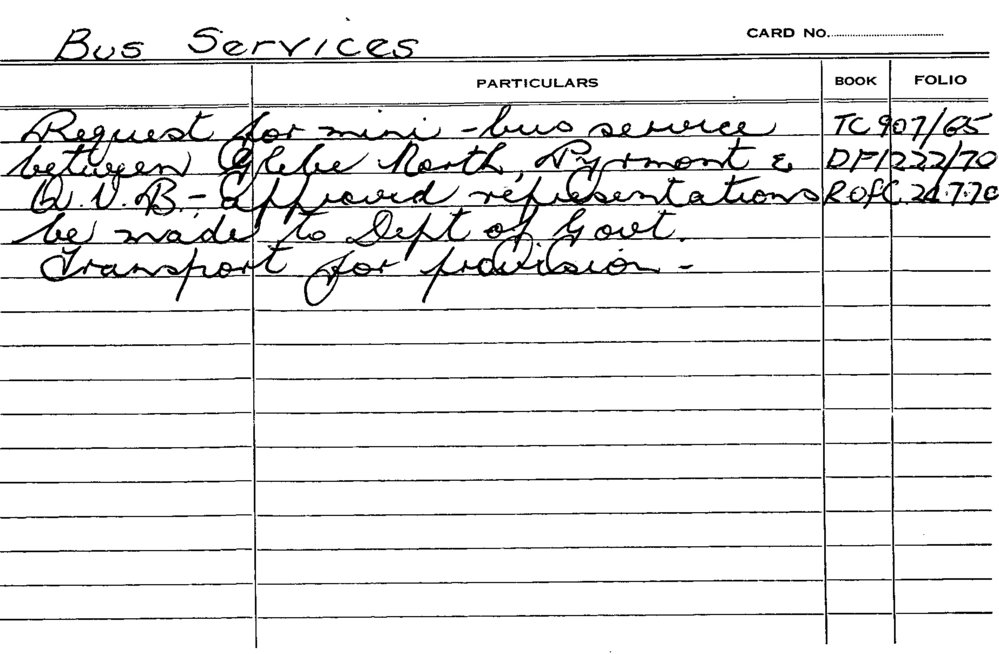 Bus Services
CARD No.
PARTICULARS BOOK FOLIO
Request for mini-bus service TC 907/65
between Glebe North, Pyrmont & DF1222/70
Q.V.B. - Approved representations R of C. 24.7.70
be made to Dept of Govt.
Transport for provision -